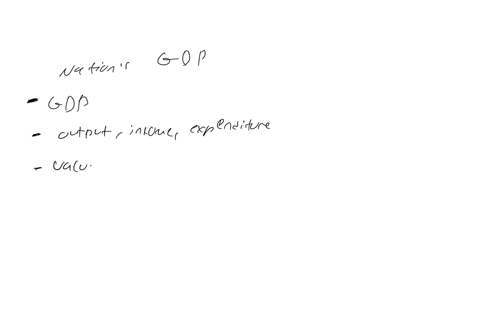 Nation's GDP
- GDP
- output, income, expenditure
- valu.